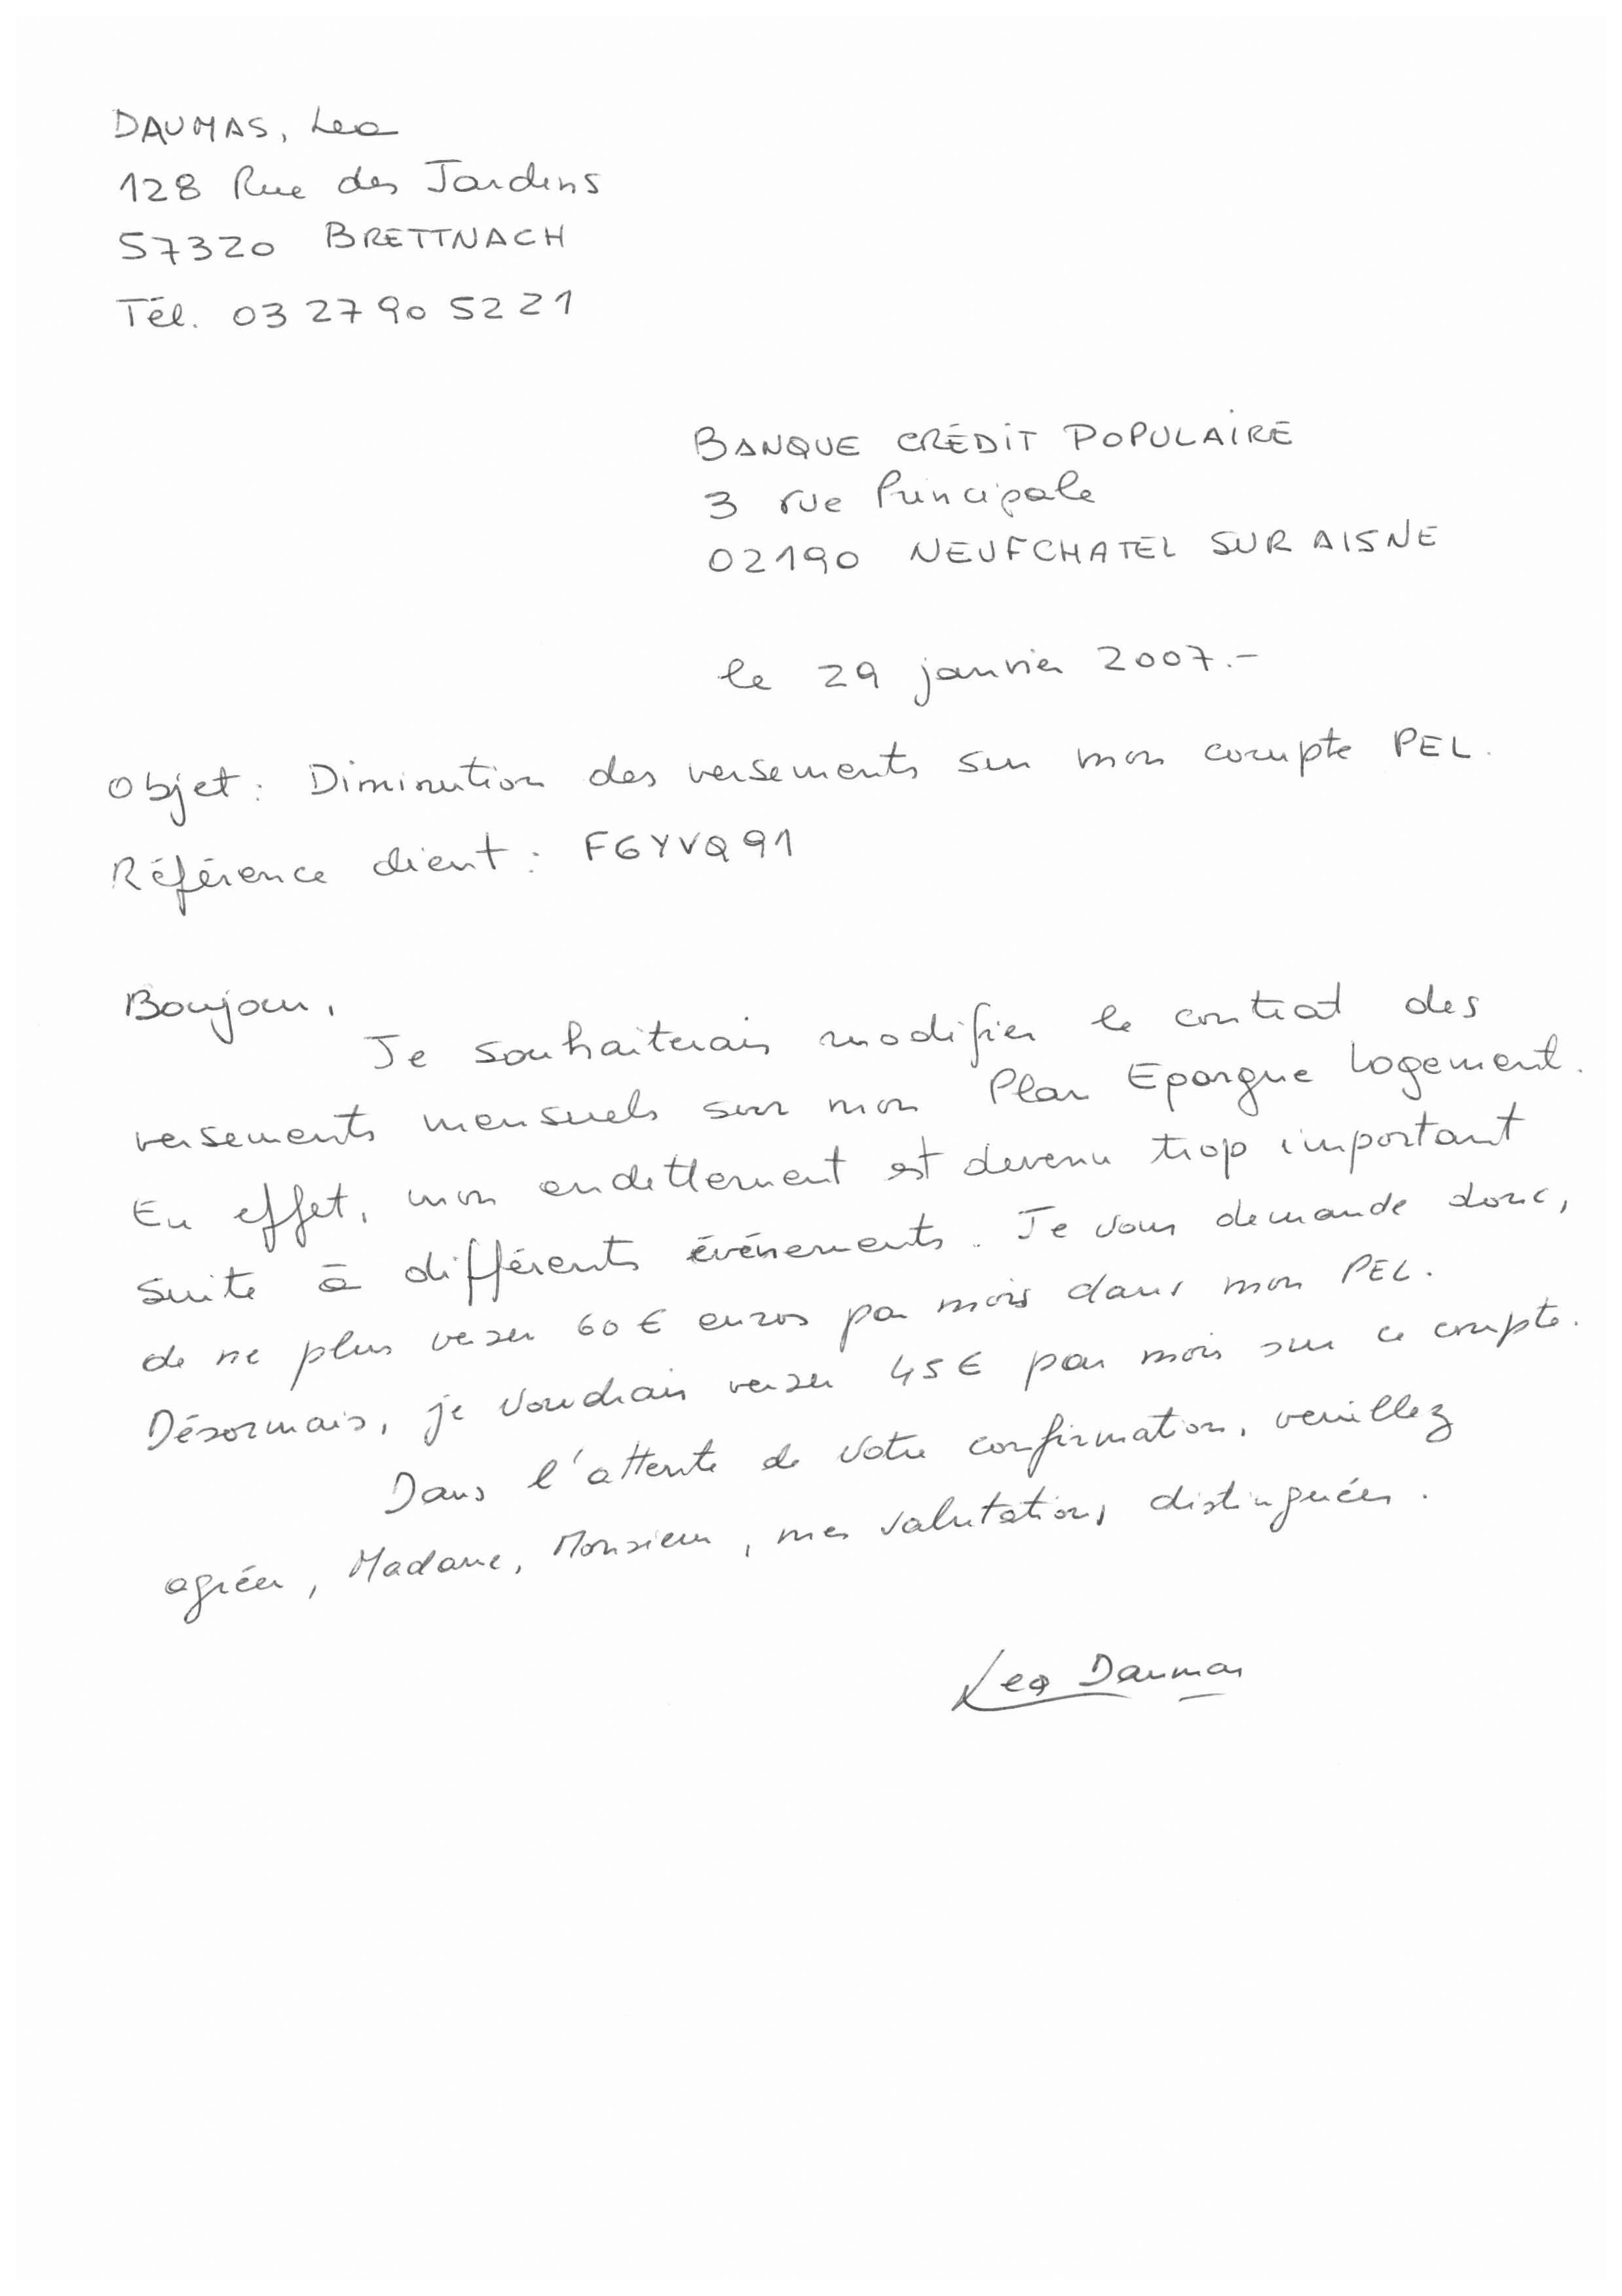 DAUMAS, Lea
128 Rue des Jardins
57320 BRETTNACH
Tél. 03 27 90 52 21
BANQUE CRÉDIT POPULAIRE
3 rue Principale
02190 NEUFCHATEL SUR AISNE
le 29 janvier 2007.-
Objet : Diminution des versements sur mon compte PEL.
Référence client : FGYVQ91
Boujour,
Je souhaiterais modifier le contrat des
versements mensuels sur mon Plan Epargne Logement.
En effet, mon endettement est devenu trop important
suite à différents événements. Je vous demande donc,
de ne plus verser 60 € euros par mois dans mon PEL.
Désormais, je voudrais verser 45 € par mois sur ce compte.
Dans l'attente de votre confirmation, veuillez
agréer, Madame, Monsieur, mes salutations distinguées.
Lea Daumas